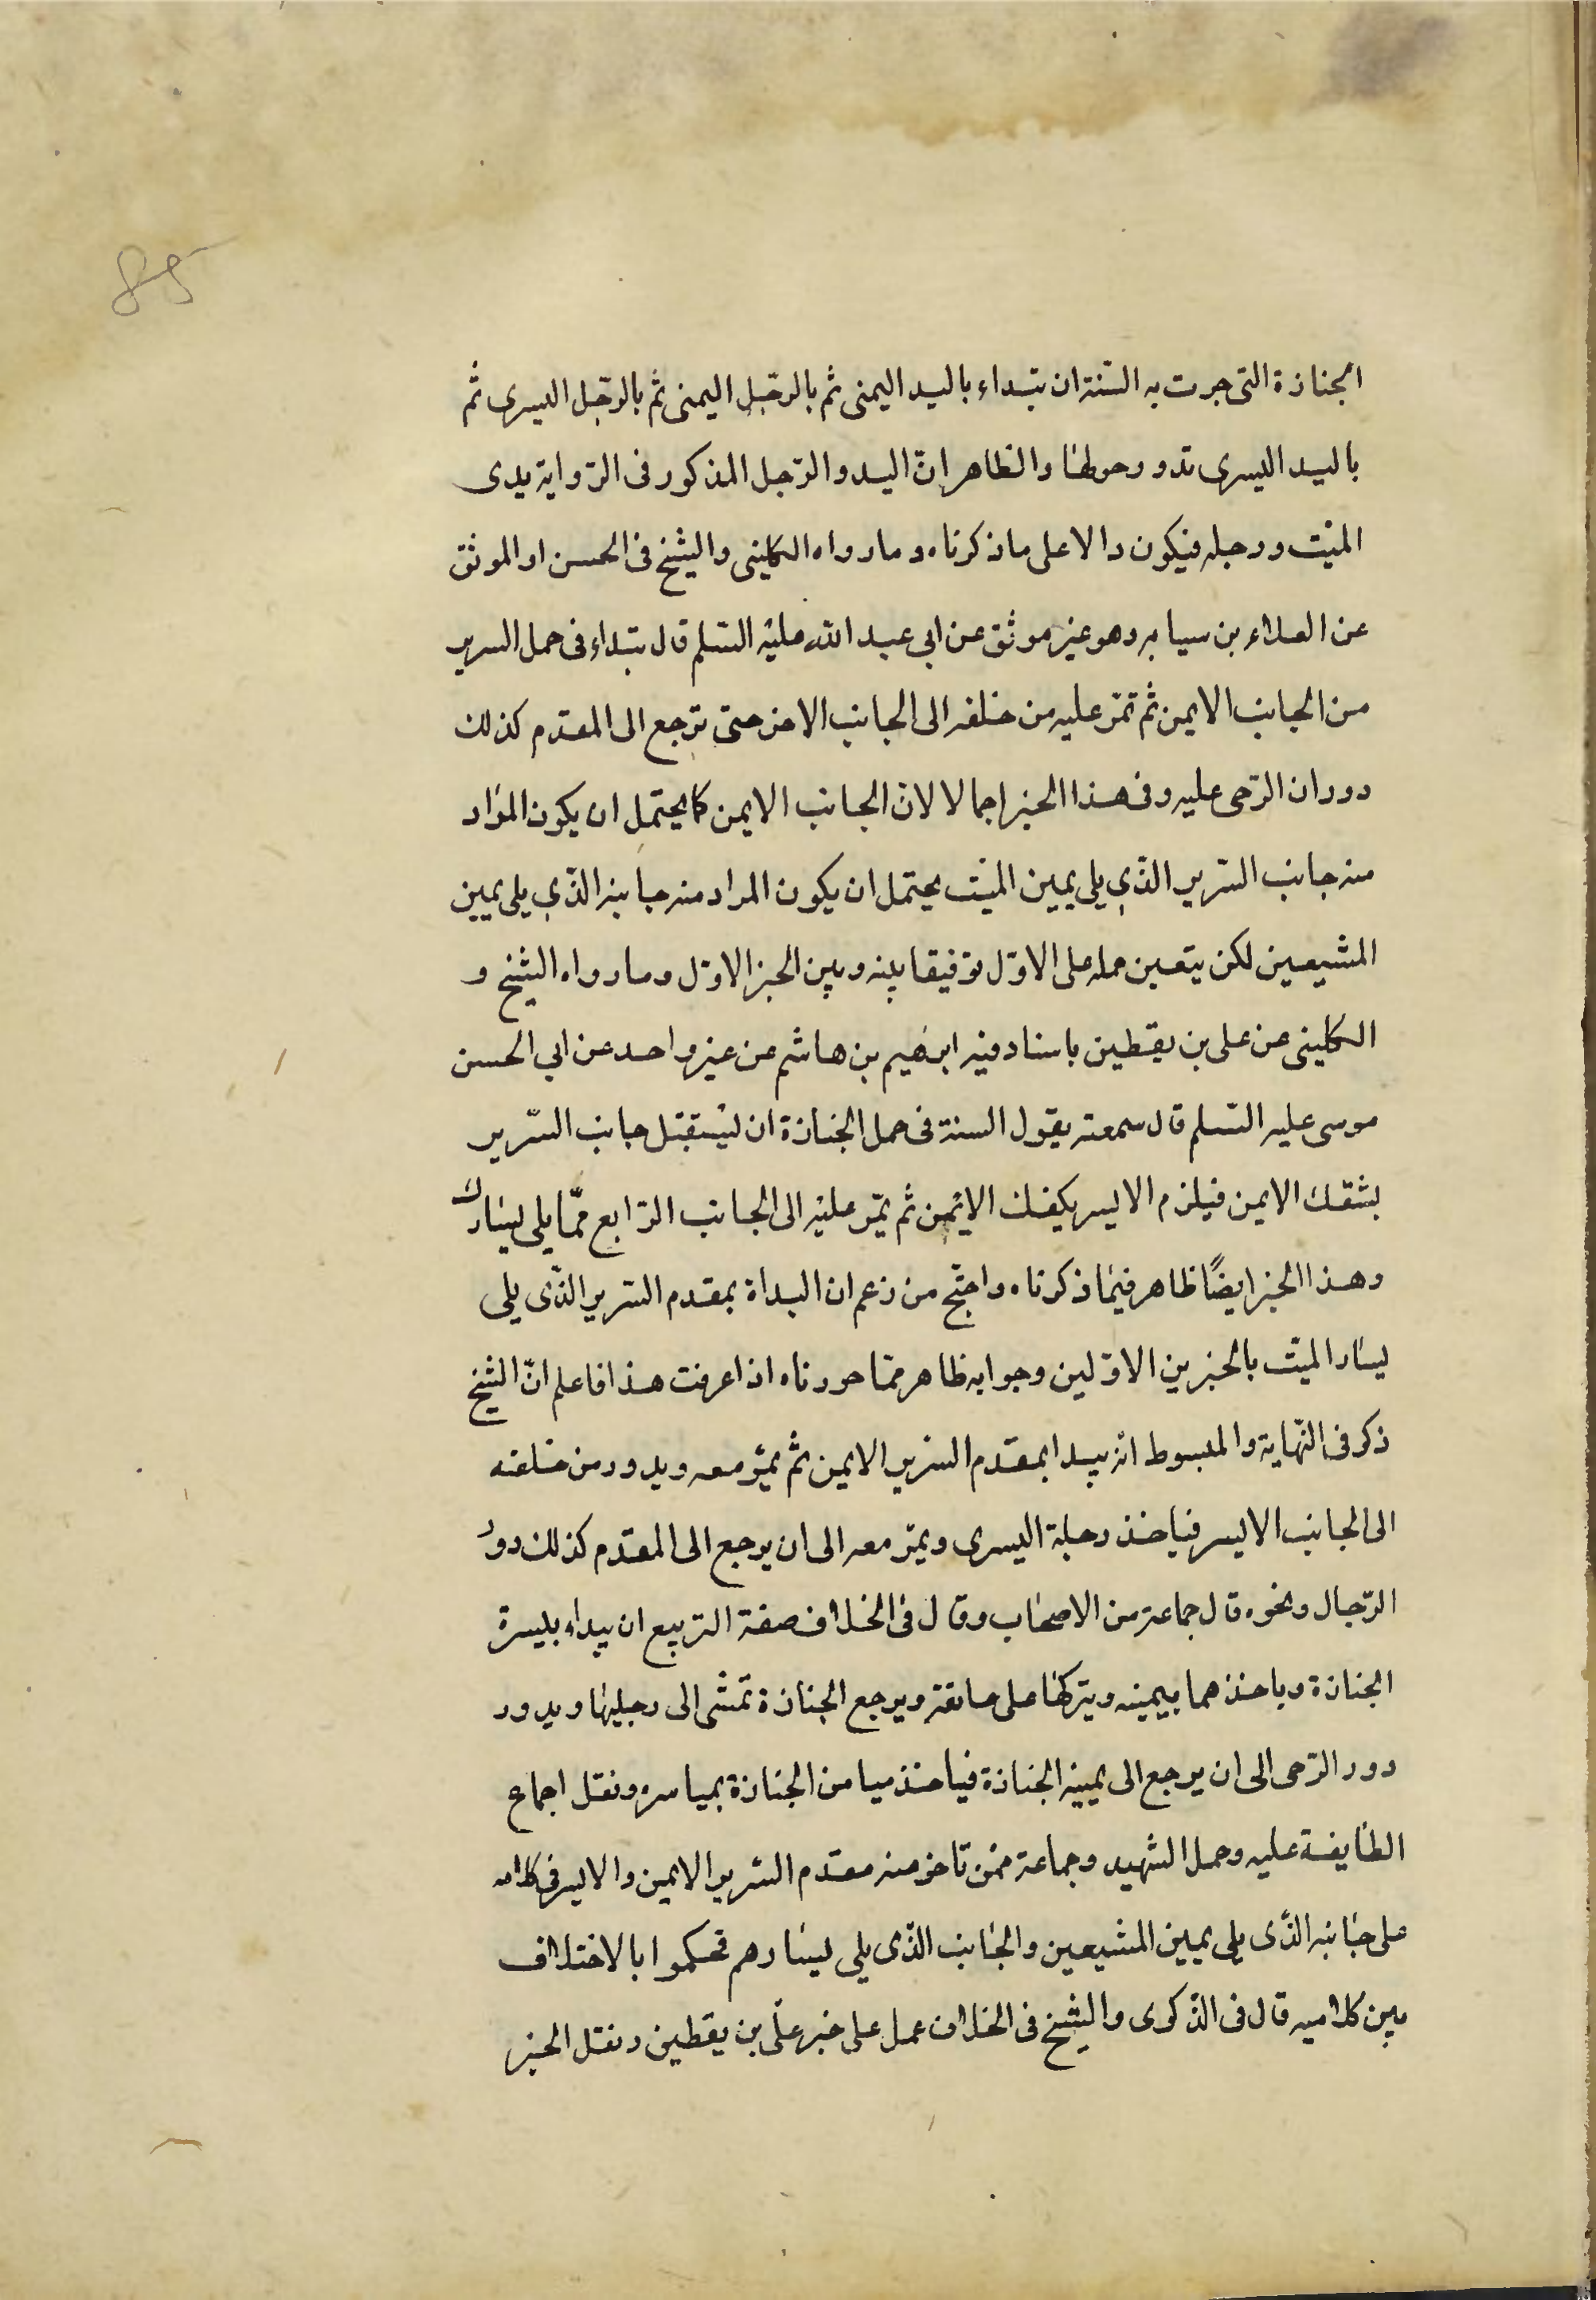 85
الجنازة التى جرت به السّنة ان تبتداء باليد اليمنى ثم بالرّجل اليمنى ثم بالرّجل اليسرى ثم
باليد اليسرى تدور حولها والظاهر انّ اليد والرّجل المذكور فى الرّواية يدى
الميّت ورجله فيكون دالا على ما ذكرناه وما رواه الكلينى والشيخ فى الحسن او الموثق
عن العلاء بن سيابه وهو غير موثق عن ابى عبد الله عليه السّلم قال تبداء فى حمل السرير
من الجانب الايمن ثم تمرّ عليه من خلفه الى الجانب الاخر حتى ترجع الى المقدم كذلك
دوران الرّحى عليه وفى هذا الخبر اجمالا لانّ الجانب الايمن كما يحتمل ان يكون المراد
منه جانب السّرير الذّي يلى يمين الميّت يحتمل ان يكون المراد منه جانبه الذّي يلى يمين
المشيعين لكن يتعين حمله على الاوّل توفيقا بينه وبين الخبر الاوّل وما رواه الشيخ و
الكلينى عن على بن يقطين باسناد فيه ابرهيم بن هاشم عن غير واحد عن ابي الحسن
موسى عليه السّلم قال سمعته يقول السنة فى حمل الجنازة ان ليستقبل جانب السّرير
بشقك الايمن فيلزم الايسر بكفك الايمن ثم يمّر عليه الى الجانب الرّابع ممّا يلى يسارك
وهذا الخبر ايضًا ظاهر فيما ذكرناه واحتجّ من زعم ان البداة بمقدم السّرير الذّى يلى
يسار الميّت بالخبرين الاوّلين وجوابه ظاهر ممّا حررناه اذا عرفت هذا فاعلم انّ الشيخ
ذكر فى النّهاية والمبسوط انّه يبدا بمقدّم السّرير الايمن ثم يمرّ معه ويدور من خلفه
الى الجانب الايسر فياخذ رجلة اليسرى ويمرّ معه الى ان يرجع الى المقدّم كذلك دور
الرّجال ونحوه قال جماعة من الاصحاب وقال فى الخلاف صفة التربيع ان يبداء بيسرة
الجنازة وياخذهما بيمينه ويتركها على عاتقه ويرجع الجنازة تمشى الى رجليها ويدور
دور الرّحى الى ان يرجع الى يمينه الجنازة فياخذ ميامن الجنازة بمياسره ونقل اجماع
الطايفة عليه وحمل الشهيد وجماعة ممّن تاخر منه مقدم السّرير الايمن والايسر فى كلامه
على جانبه الذّى يلى يمين المشيعين والجانب الذّى يلى يسارهم فحكموا بالاختلاف
بين كلاميه قال فى الذّكرى والشيخ فى الخلاف عمل على خبر علّى بن يقطين ونقل الخبر